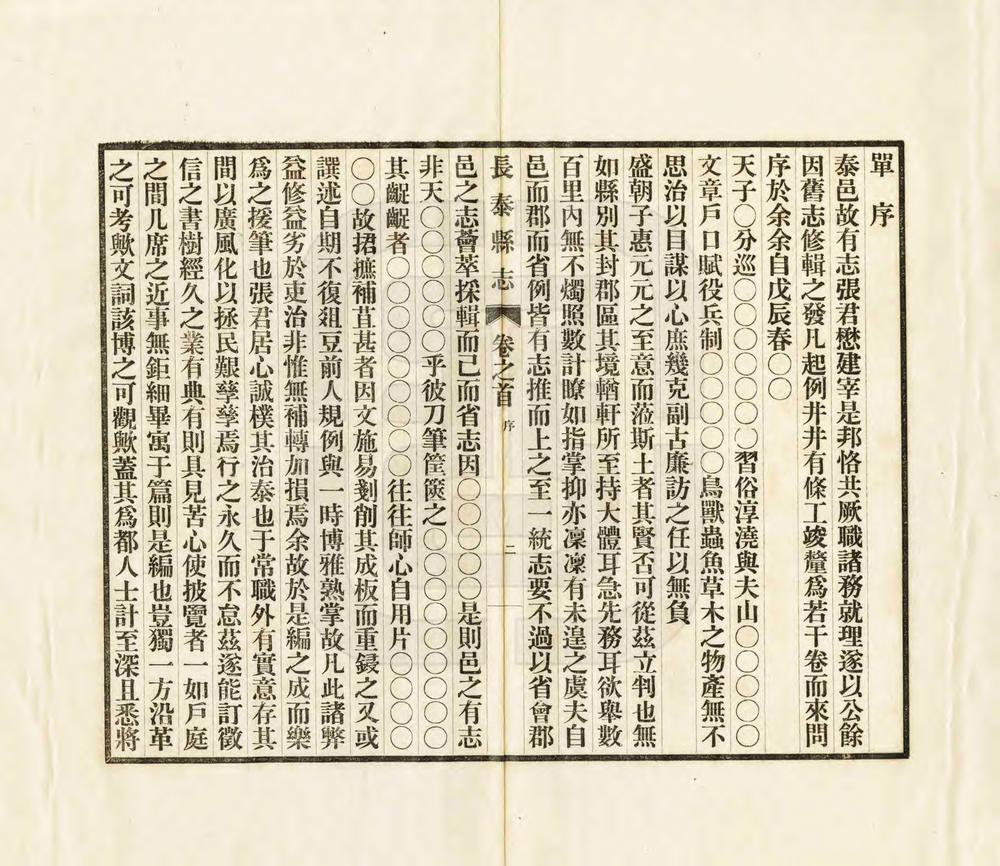 單序
泰邑故有志張君懋建宰是邦恪共厥職諸務就理遂以公餘
因舊志修輯之發凡起例井井有條工竣釐爲若干卷而來問
序於余余自戊辰春〇〇
天子〇分巡〇〇〇〇〇〇〇習俗淳澆與夫山〇〇〇〇〇
文章戶口賦役兵制〇〇〇〇〇鳥獸蟲魚草木之物產無不
思治以目謀以心庶幾克副古廉訪之任以無負
盛朝子惠元元之至意而蒞斯土者其賢否可從茲立判也無
如縣別其封郡區其境輶軒所至持大體耳急先務耳欲舉數
百里內無不燭照數計瞭如指掌抑亦凜凜有未遑之虞夫自
邑而郡而省例皆有志推而上之至一統志要不過以省會郡
長泰縣志 卷之首 序 二
邑之志薈萃採輯而已而省志因〇〇〇〇〇是則邑之有志
非天〇〇〇〇〇〇〇乎彼刀筆筐篋之〇〇〇〇〇〇〇〇
其齪齪者〇〇〇〇〇〇〇〇〇往往師心自用片〇〇〇〇
〇〇故捃摭補苴甚者因文施易剗削其成板而重鋟之又或
譔述自期不復俎豆前人規例與一時博雅熟掌故凡此諸弊
益修益劣於吏治非惟無補轉加損焉余故於是編之成而樂
爲之援筆也張君居心誠樸其治泰也于常職外有實意存其
間以廣風化以拯民艱孳孳焉行之永久而不怠茲遂能訂徵
信之書樹經久之業有典有則具見苦心使披覽者一如戶庭
之間几席之近事無鉅細畢寓于篇則是編也豈獨一方沿革
之可考歟文詞該博之可觀歟蓋其爲都人士計至深且悉將